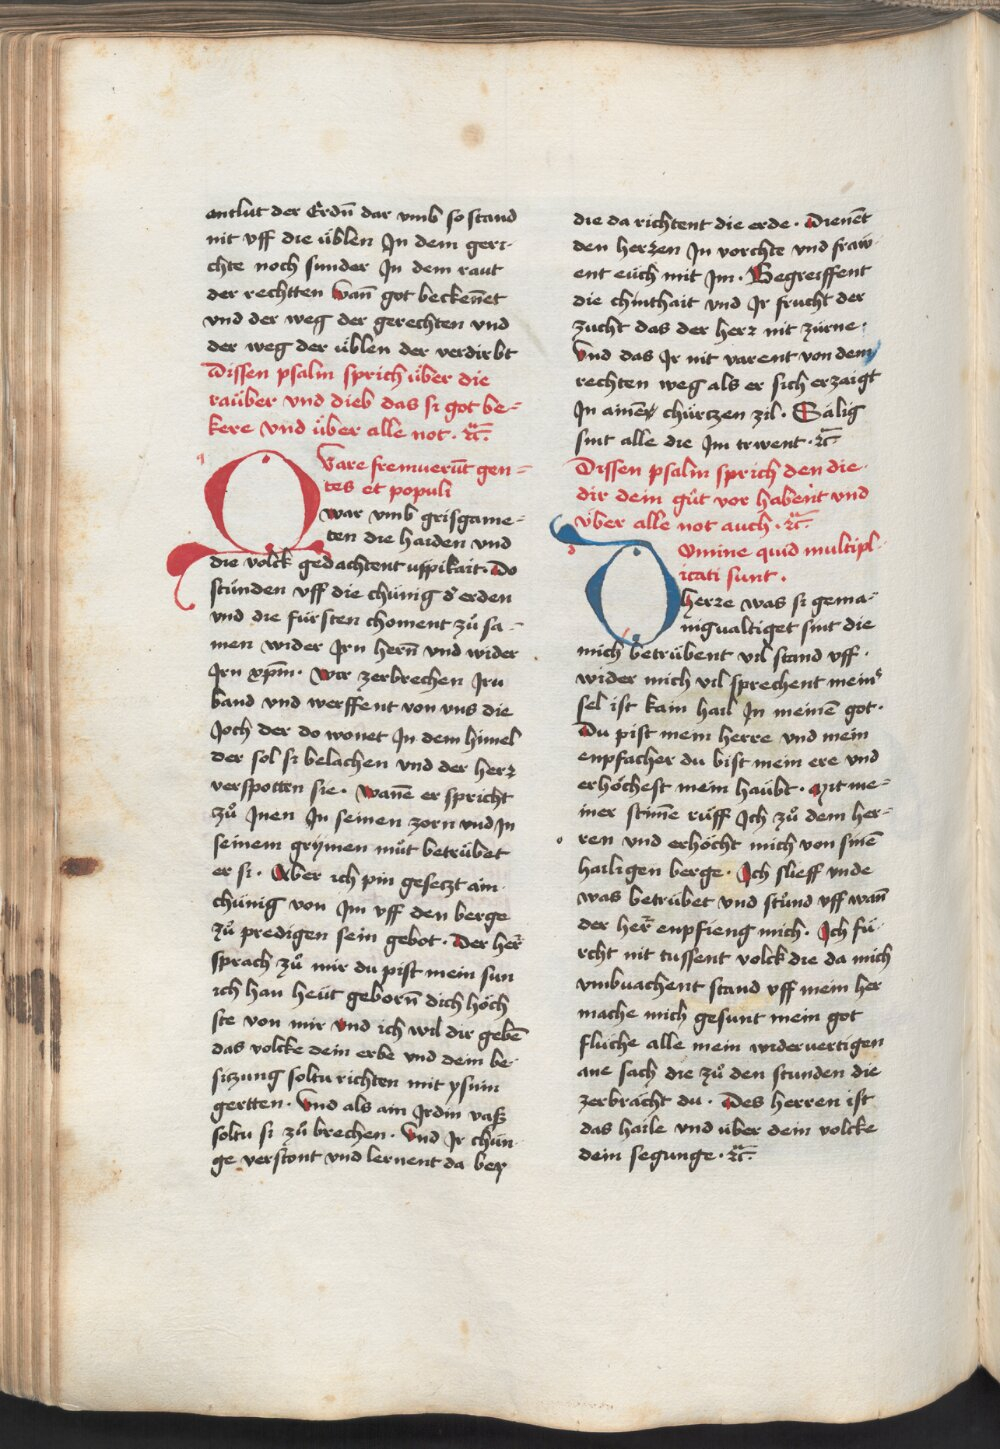 antlüt der Erdn̄ dar vmb so stand
nit vff die üblen Jn dem geri-
chte noch sunder Jn dem raut
der rechtten wan̄ got beckēnet
vnd der weg der gerechten vnd
der weg der üblen der verdirbt
Dissen psalm sprich über die
raüber vnd dieb das si got be-
kere vnd über alle not · ⁊c̄.
Qvare fremuerūt gen-
tes et populi
war vmb grisgame-
ten die haiden vnd
die volck gedachtent uppikait · Do
stůnden vff die chünig d' erden
vnd die fürsten choment zů sa-
men wider Jrn hern̄ vnd wider
Jrn xp̄m · Wir zerbrechen Jru
band vnd werffent von vns die
Joch der do wonet Jn dem himel
der sol si belachen vnd der herz
verspotten sie · wanē er spricht
zů Jnen Jn seinen zorn vnd Jn
seinem grymen můt betrübet
er si · Aber ich pin gesetzt ain
chünig von Jm vff den berge
zů predigen sein gebot · Der her̄
sprach zů mir du pist mein sun
ich han heüt geborn̄ dich höch
ste von mir vnd ich wil dir gebē
das volcke dein erbe vnd dein be-
sitzung soltu richten mit ysnin
gertten · vnd als ain Jrdin vaß
soltu si zů brechen · vnd Jr chün
ge verstont vnd lernent da bey
die da richtent die erde · Dienēt
den herzen Jn vorchte vnd fraw
ent eüch mit Jm · Begreiffent
die chinthait vnd Jr frucht der
zucht das der herz nit zürne ·
vnd das Jr nit varent von dem
rechten weg als er sich erzaigt
Jn ainer chürtzen zil · Sälig
sint alle die Jm trwent · ⁊c̄
Dissen psalm sprich den die
dir dein gůt vor habent vnd
über alle not auch · ⁊c̄.
Domine quid multipl
icati sunt ·
herze was si gema-
nigualtiget sint die
mich betrübent vil stand vff ·
wider mich vil sprechent mein'
sel ist kain hail Jn meinē got ·
Du pist mein herre vnd mein
enpfacher du bist mein ere vnd
erhöchest mein haübt · Mit me-
iner stim̄e rüff Jch zů dem her-
ren vnd erhöcht mich von sinē
hailigen berge · Jch slieff vnde
was betrübet vnd stůnd vff wan̄
der her̄ enpfieng mich · Jch fü-
rcht nit tussent volck die da mich
vmbuachent stand vff mein her
mache mich gesunt mein got
flüche alle mein widervertigen
ane sach die zů den stunden die
zerbracht du · Des herren ist
das haile vnd über dein volcke
dein segunge · ⁊c̄.